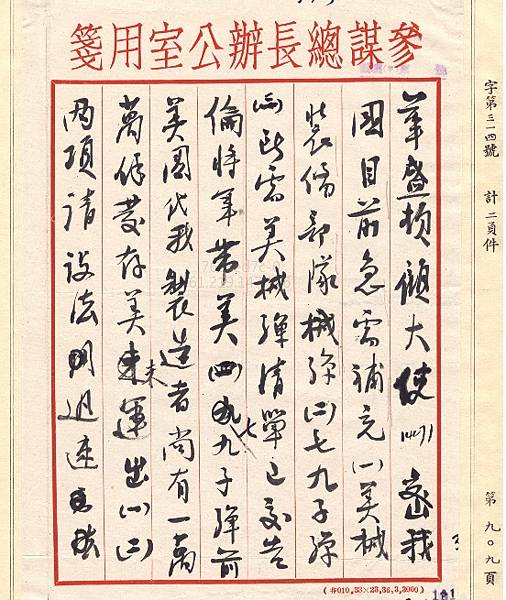 參謀總長辦公室用箋
華盛頓顧大使密我
國目前急需補充(一)美械
裝備部隊械彈(二)七九子彈
需美械彈清單已交
倫將軍帶美(四)七九子彈前
美國代我製造者尚有一萬
萬餘發存美未運出(一)(二)
兩項請設法迅速
字第三一四號 計二頁件
第九〇九頁
010,33×23,36,3,3000)